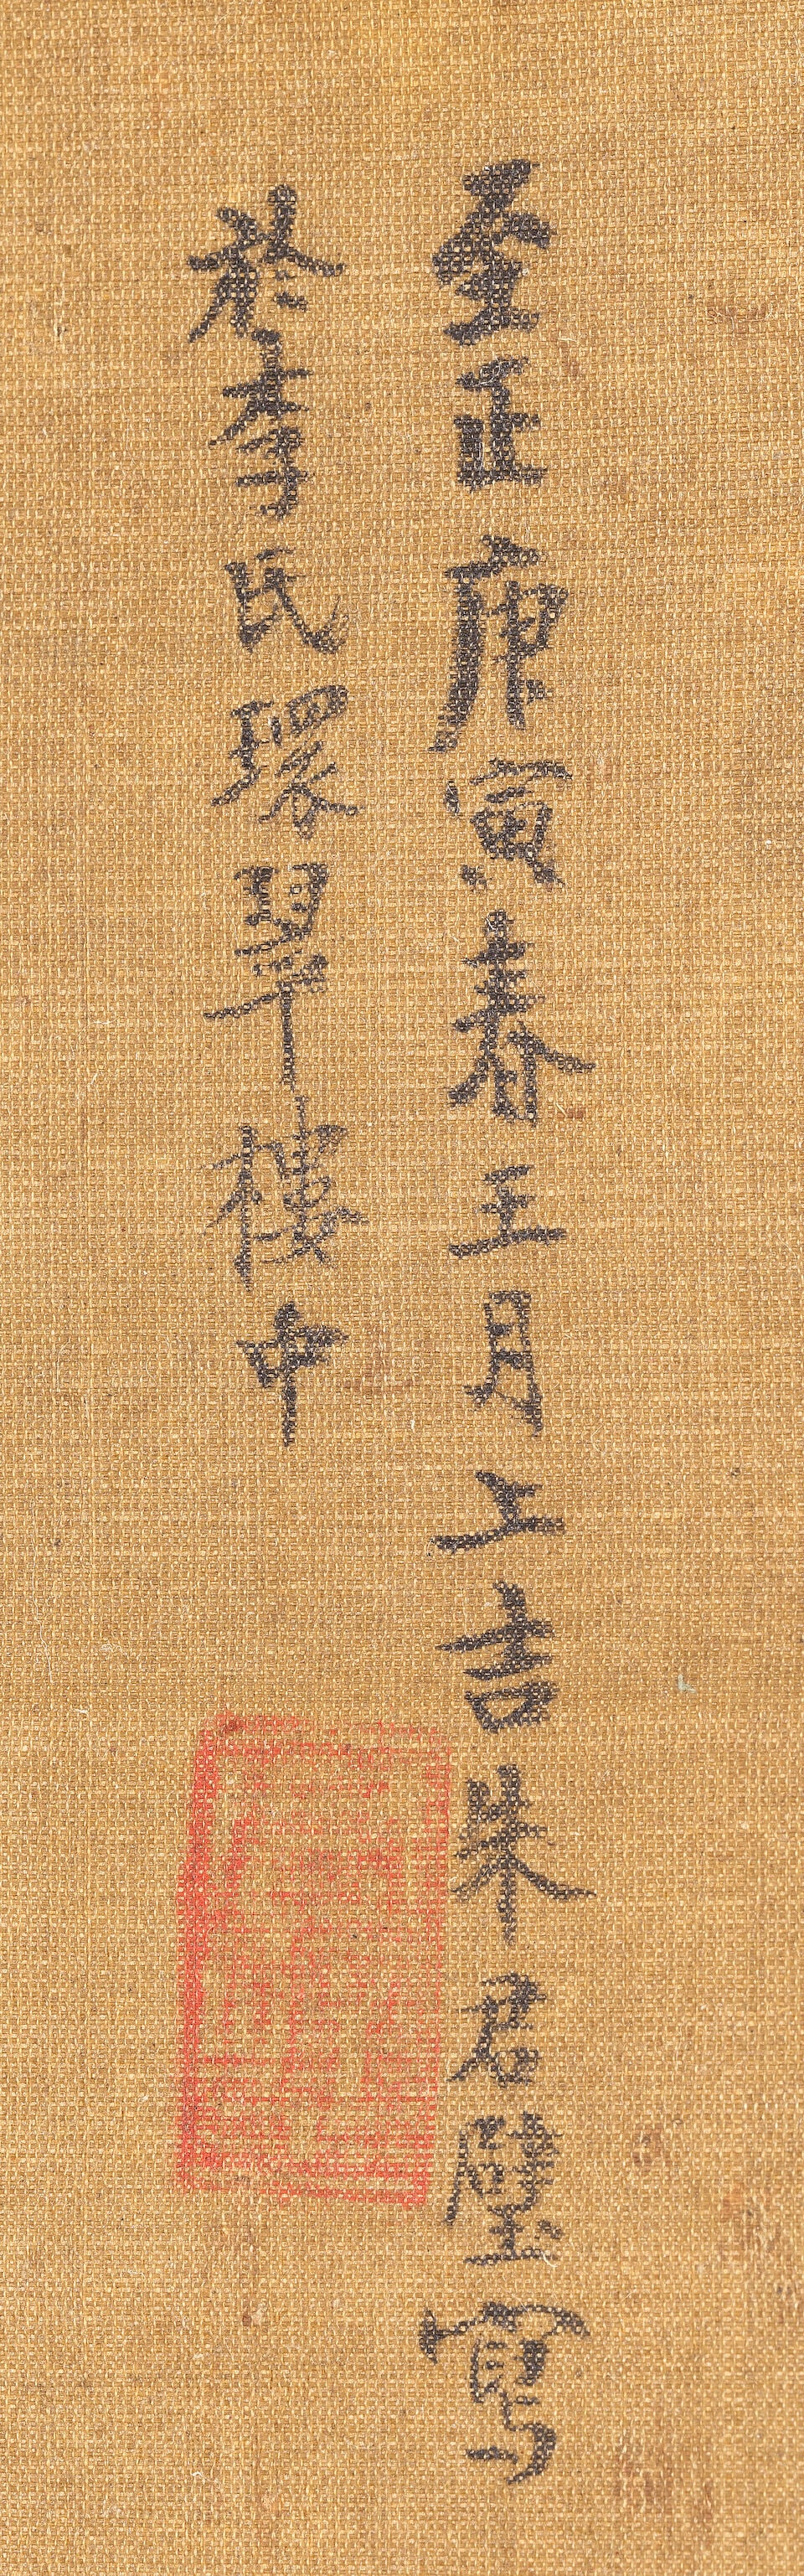 至正庚寅春王月上吉朱君璧寫
於李氏環翠樓中